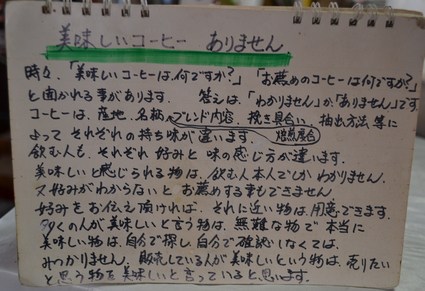 美味しいコーヒー ありません.
時々、「美味しいコーヒーは何ですか?」「お薦めのコーヒーは何ですか?」
と聞かれる事があります. 答えは、「わかりません」か「ありません」です
コーヒーは、産地、名柄、ブレンド内容、挽き具合い、抽出方法等に
よって それぞれの持ち味が違います. 焙煎度合
飲む人も、それぞれ好みと味の感じ方が違います.
美味しいと感じられる物は、飲む人本人でしかわかりません。
又好みがわからないと お薦めする事もできません
好みをお伝え頂ければ、それに近い物は、用意できます.
多くの人が美味しいと言う物は、無難な物で本当に
美味しい物は、自分で探し、自分で確認しなくては、
みつかりません。販売している人が美味しいという物は、売りたい
と思う物を美味しいと言っていると思います.